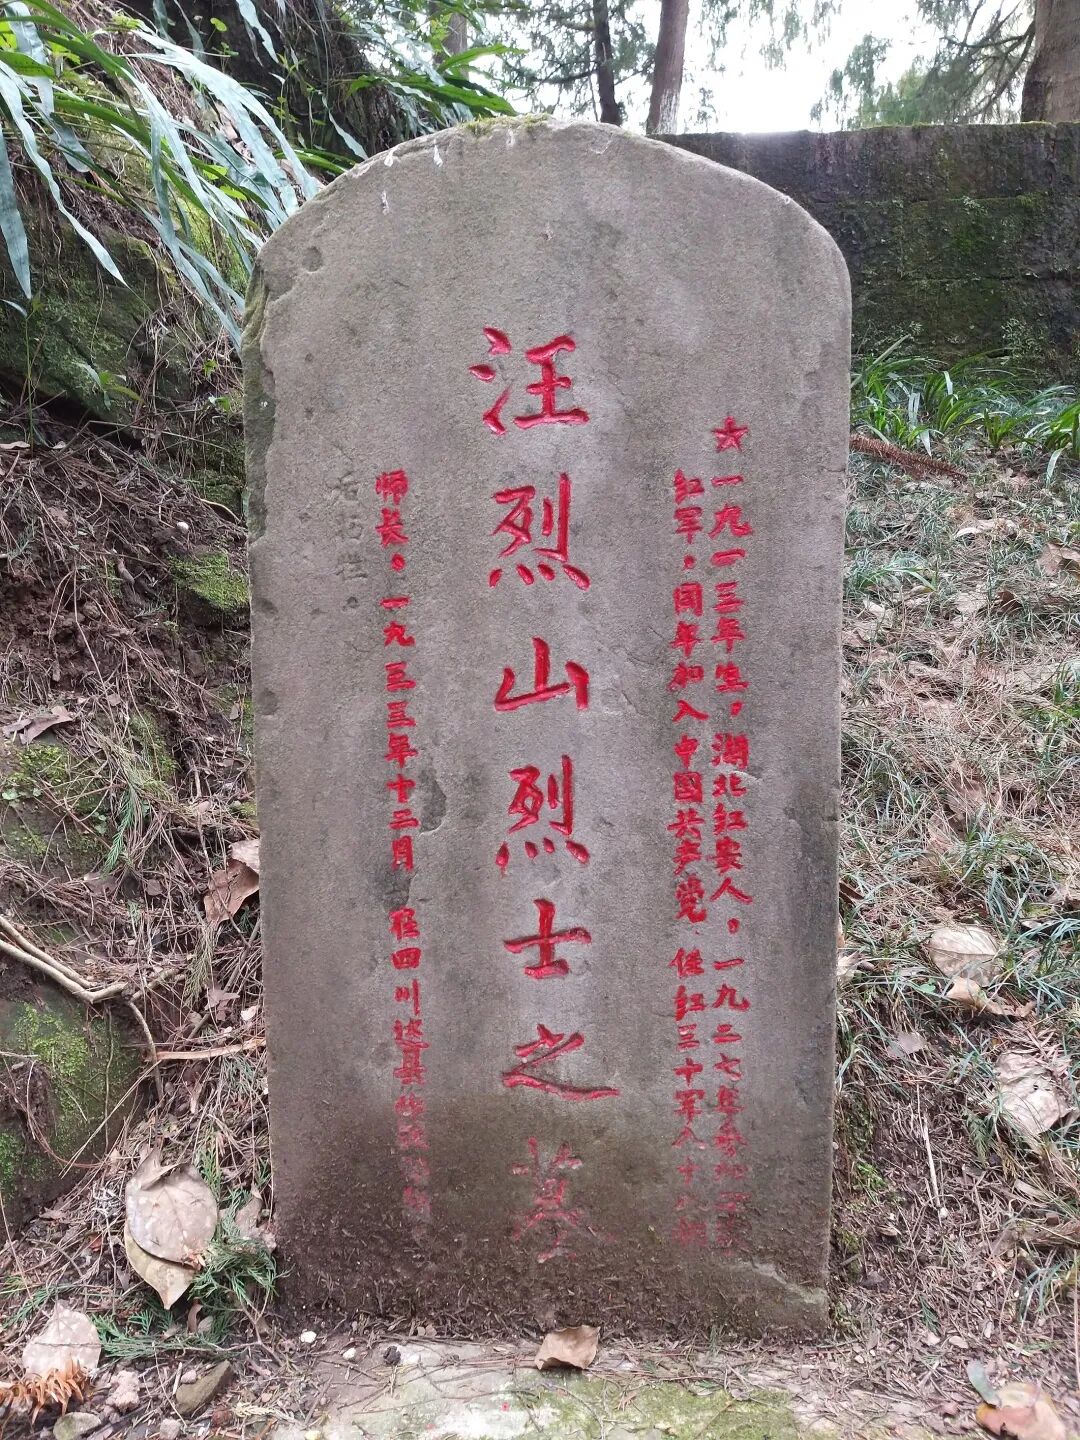 ★一九一三年生，湖北红安人。一九二七年参加
红军，同年加入中国共产党 任红三十军八十八师
汪烈山烈士之墓
师长。一九三三年十二月 在四川达县